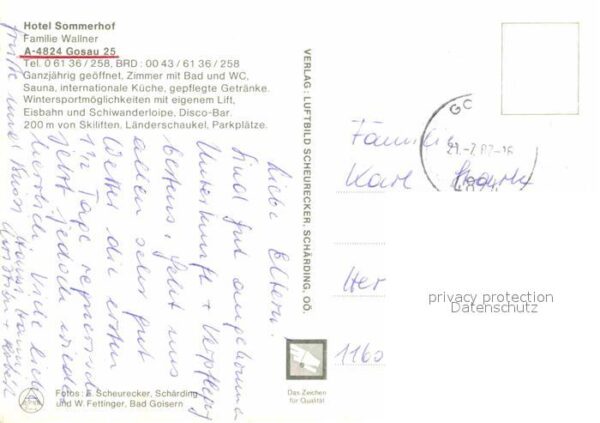 Hotel Sommerhof
Familie Wallner
A-4824 Gosau 25
Tel. 0 61 36 / 258, BRD : 00 43 / 61 36 / 258
Ganzjährig geöffnet, Zimmer mit Bad und WC,
Sauna, internationale Küche, gepflegte Getränke.
Wintersportmöglichkeiten mit eigenem Lift,
Eisbahn und Schiwanderloipe, Disco-Bar.
200 m von Skiliften, Länderschaukel, Parkplätze.
Liebe Eltern.
Sind gut angekommen
Unterkunft + Verpflegung
bestens, geht uns
allen sehr gut
Wetter die ersten
1½ Tage regnerisch
jetzt jedoch wieder
herrlich. Viele liebe
Grüße und Bussi
VERLAG: LUFTBILD SCHEURECKER, SCHÄRDING, OÖ.
Familie
Karl
1160
privacy protection
Datenschutz
Das Zeichen
für Qualität
Fotos : E. Scheurecker, Schärding
und W. Fettinger, Bad Goisern